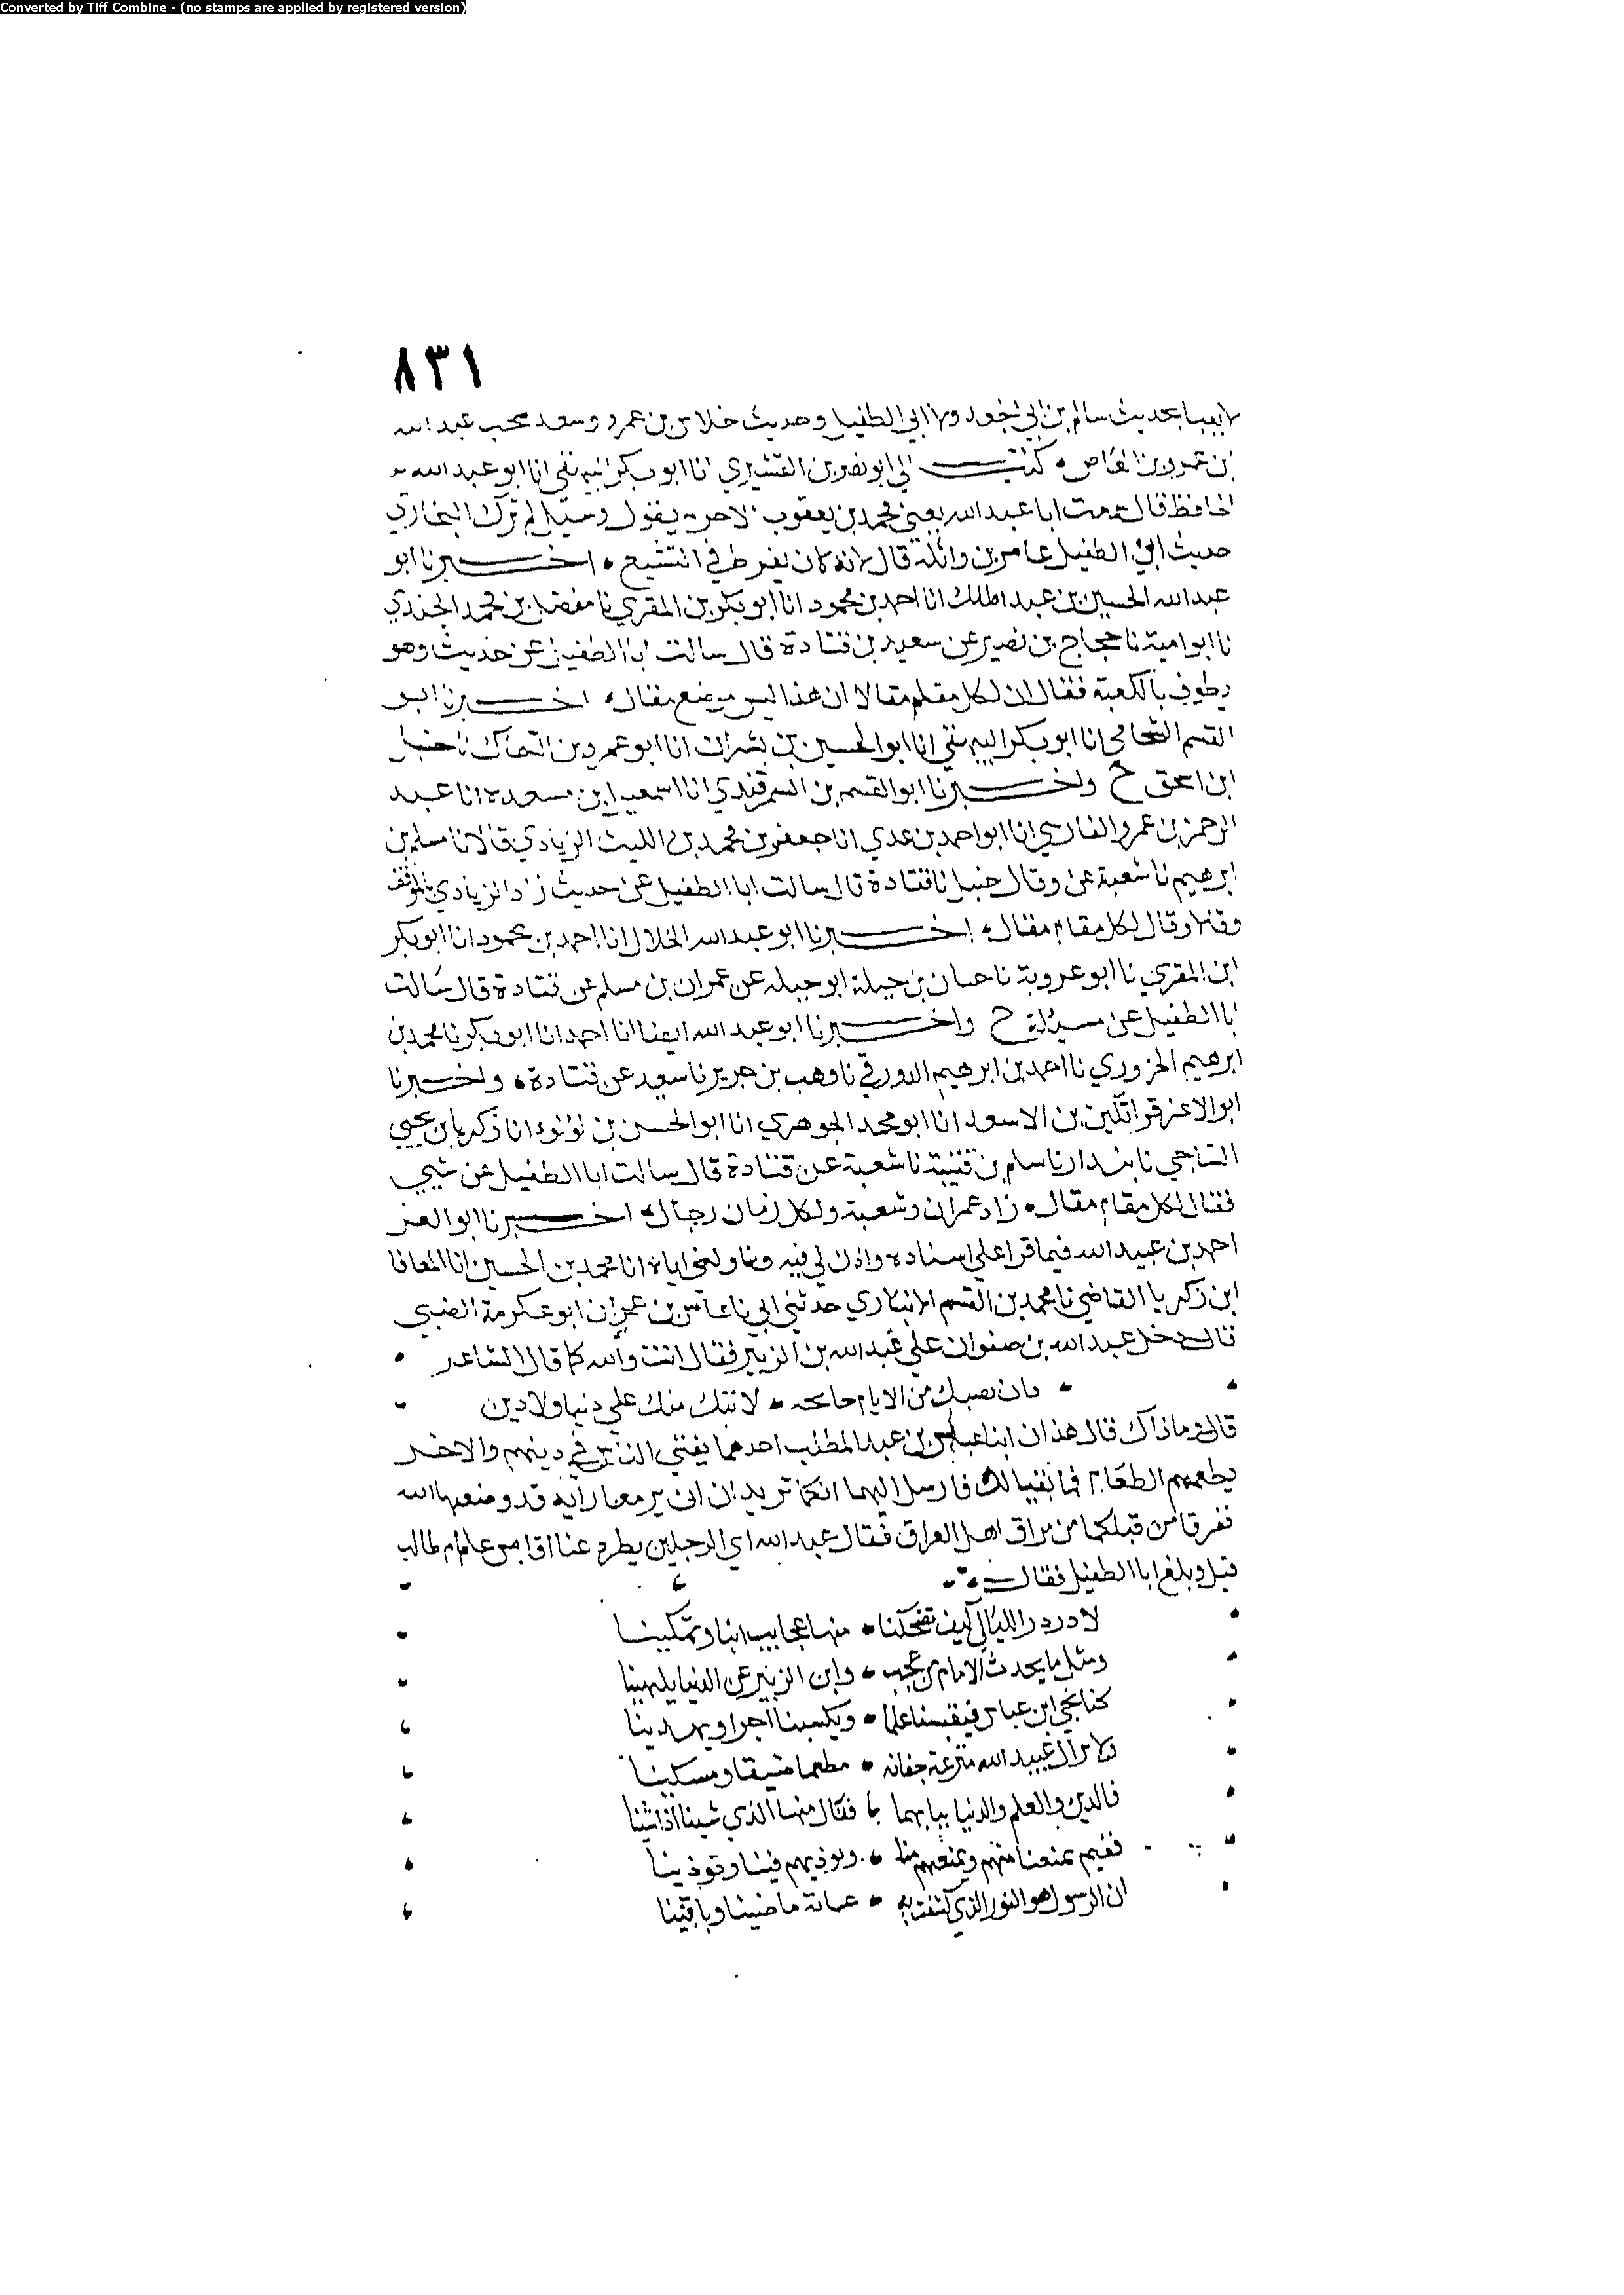 Converted by Tiff Combine - (no stamps are applied by registered version)
٨٣١
لا يعبا بحديث سالم بن ابي الجعد ولا ابي الطفيل وحديث خلاس بن عمرو وسعد صحب عبد الله
بن عمرو بن العاص كتب الي ابو نصر بن القشيري انا ابو بكر البيهقي انا ابو عبد الله
الحافظ قال سمعت ابا عبد الله يعني محمد بن يعقوب الاخرم يقول وسئل لم ترك البخاري
حديث ابي الطفيل عامر بن واثلة قال لانه كان يفرط في التشيع اخبرنا ابو
عبد الله الحسين بن عبد الملك انا احمد بن محمود انا ابو بكر بن المقري نا مفضل بن محمد الجندي
نا ابو امية نا حجاج بن نصير عن سعيد بن قتادة قال سالت ابا الطفيل عن حديث وهو
يطوف بالكعبة فقال ان لكل مقام مقالا ان هذا ليس موضع مقال اخبرنا ابو
القسم الشحامي انا ابو بكر البيهقي انا ابو الحسين بن بشران انا ابو عمرو بن السماك نا حنبل
ابن اسحق ح واخبرنا ابو القسم بن السمرقندي انا اسمعيل بن مسعدة انا عبد
الرحمن بن عمرو الفارسي انا ابو احمد بن عدي انا جعفر بن محمد بن الليث الزيادي قالا نا مسلم بن
ابرهيم نا شعبة عن وقال حنبل نا قتادة قال سالت ابا الطفيل عن حديث زاد الزيادي بالموقف
وقالا وقال لكل مقام مقال اخبرنا ابو عبد الله الخلال انا احمد بن محمود انا ابو بكر
ابن المقري نا ابو عروبة نا حسان بن جبلة ابو جبله عن عمران بن مسلم عن قتادة قال سالت
ابا الطفيل عن مسئلة ح واخبرنا ابو عبد الله ايضا انا احمد انا ابو بكر نا محمد بن
ابرهيم الحزوري نا احمد بن ابرهيم الدورقي نا وهب بن جرير نا سعيد عن قتادة واخبرنا
ابو الاعز قراتكين بن الاسعد انا ابو محمد الجوهري انا ابو الحسن بن لؤلؤ انا زكريا بن يحيي
الساجي نا بندار نا سلم بن قتيبة نا شعبة عن قتادة قال سالت ابا الطفيل عن شيي
فقال لكل مقام مقال زاد عمران وشعبة ولكل زمان رجال اخبرنا ابو العز
احمد بن عبيد الله فيما قرا علي اسناده واذن لي فيه وناولني اياه انا محمد بن الحسين انا المعافا
ابن زكريا القاضي نا محمد بن القسم الانباري حدثني ابي نا عامر بن عمران ابو عكرمة الضبي
قال دخل عبد الله بن صفوان علي عبد الله بن الزبير فقال انت والله كما قال الشاعر
فان تصبك من الايام جايحه لا نبك منك علي دنيا ولا دين
قال وما ذاك قال هذان ابنا عباس بن عبد المطلب احدهما يفتي الناس في دينهم والاخر
يطعمهم الطعام فما بقيا لك فارسل اليهما انكما تريدان ان ترفعا راية قد وضعها الله
ففرقا من قبلكما من مراق اهل العراق فقال عبد الله اي الرجلين يطرد عنا اقابس علم ام طالب
قيل وبلغ ابا الطفيل فقال
لا در در الليالي كيف تضحكنا منها عجايب انبا وتبكينا
ومثل ما يحدث الايام من عجب وابن الزبير عن الدنيا يلهينا
كنا نجي ابن عباس فيقبسنا علما ويكسبنا اجرا ويهدينا
ولا يزال عبيد الله مترعة جفانه مطعما ضيفا ومسكينا
فالدين والعلم والدنيا ببابهما ننال منها الذي شينا اذا شينا
ففيم تمنعنا منهم وتمنعهم منا وتوذيهم فينا وتوذينا
ان الرسول هو النور الذي كشفت به عماية ماضينا وباقينا